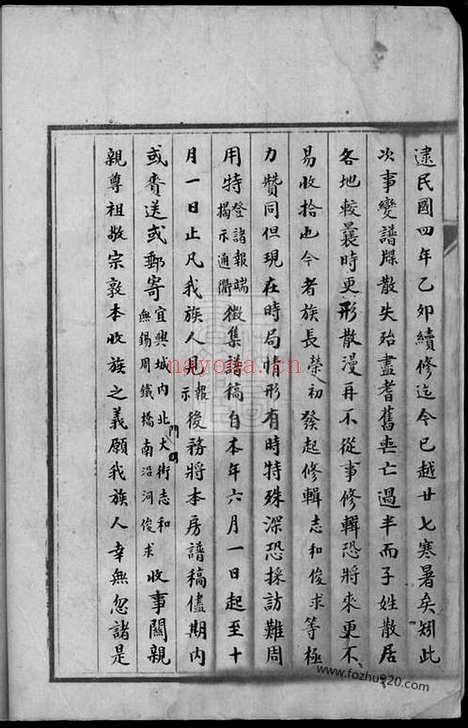 逮民國四年乙卯續修迄今已越廿七寒暑矣矧此
次事變譜牒散失殆盡耆舊喪亡過半而子姓散居
各地較曩時更形散漫再不從事修輯恐將來更不
易收拾也今者族長榮初發起修輯志和俊求等極
力贊同但現在時局情形有時特殊深恐採訪難周
用特登諸報端揭示通衢徵集譜稿自本年六月一日起至十
月一日止凡我族人見報示後務將本房譜稿儘期內
或賫送或郵寄宜興城内北大街志和無錫周鐵橋南沿河俊求收事關親
門
親尊祖敬宗敦本收族之義願我族人幸無忽諸是
nayona.cn
www.fozhu920.com